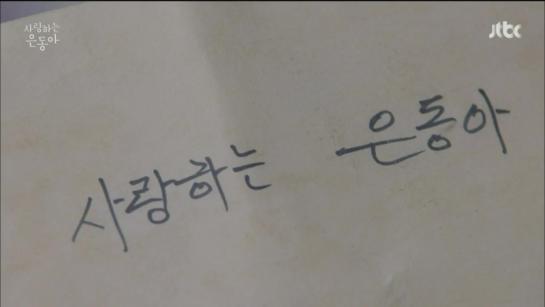 사랑하는
은동아
jtbc
사랑하는 은동아